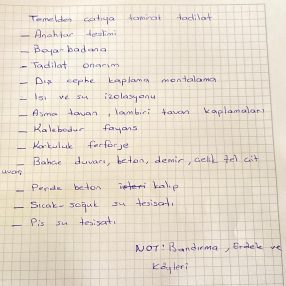 Temelden çatıya tamirat tadilat
- Anahtar teslimi
- Boya-badana
- Tadilat onarım
- Dış cephe kaplama mantolama
- Isı ve su izolasyonu
- Asma tavan, lambiri tavan kaplamaları
- Kalebodur fayans
- Korkuluk ferforje
- Bahçe duvarı, beton, demir, çelik tel çit
- Perde beton kalıp
- Sıcak-soğuk su tesisatı
- Pis su tesisatı
NOT: Bandırma, Erdek ve
Köyleri